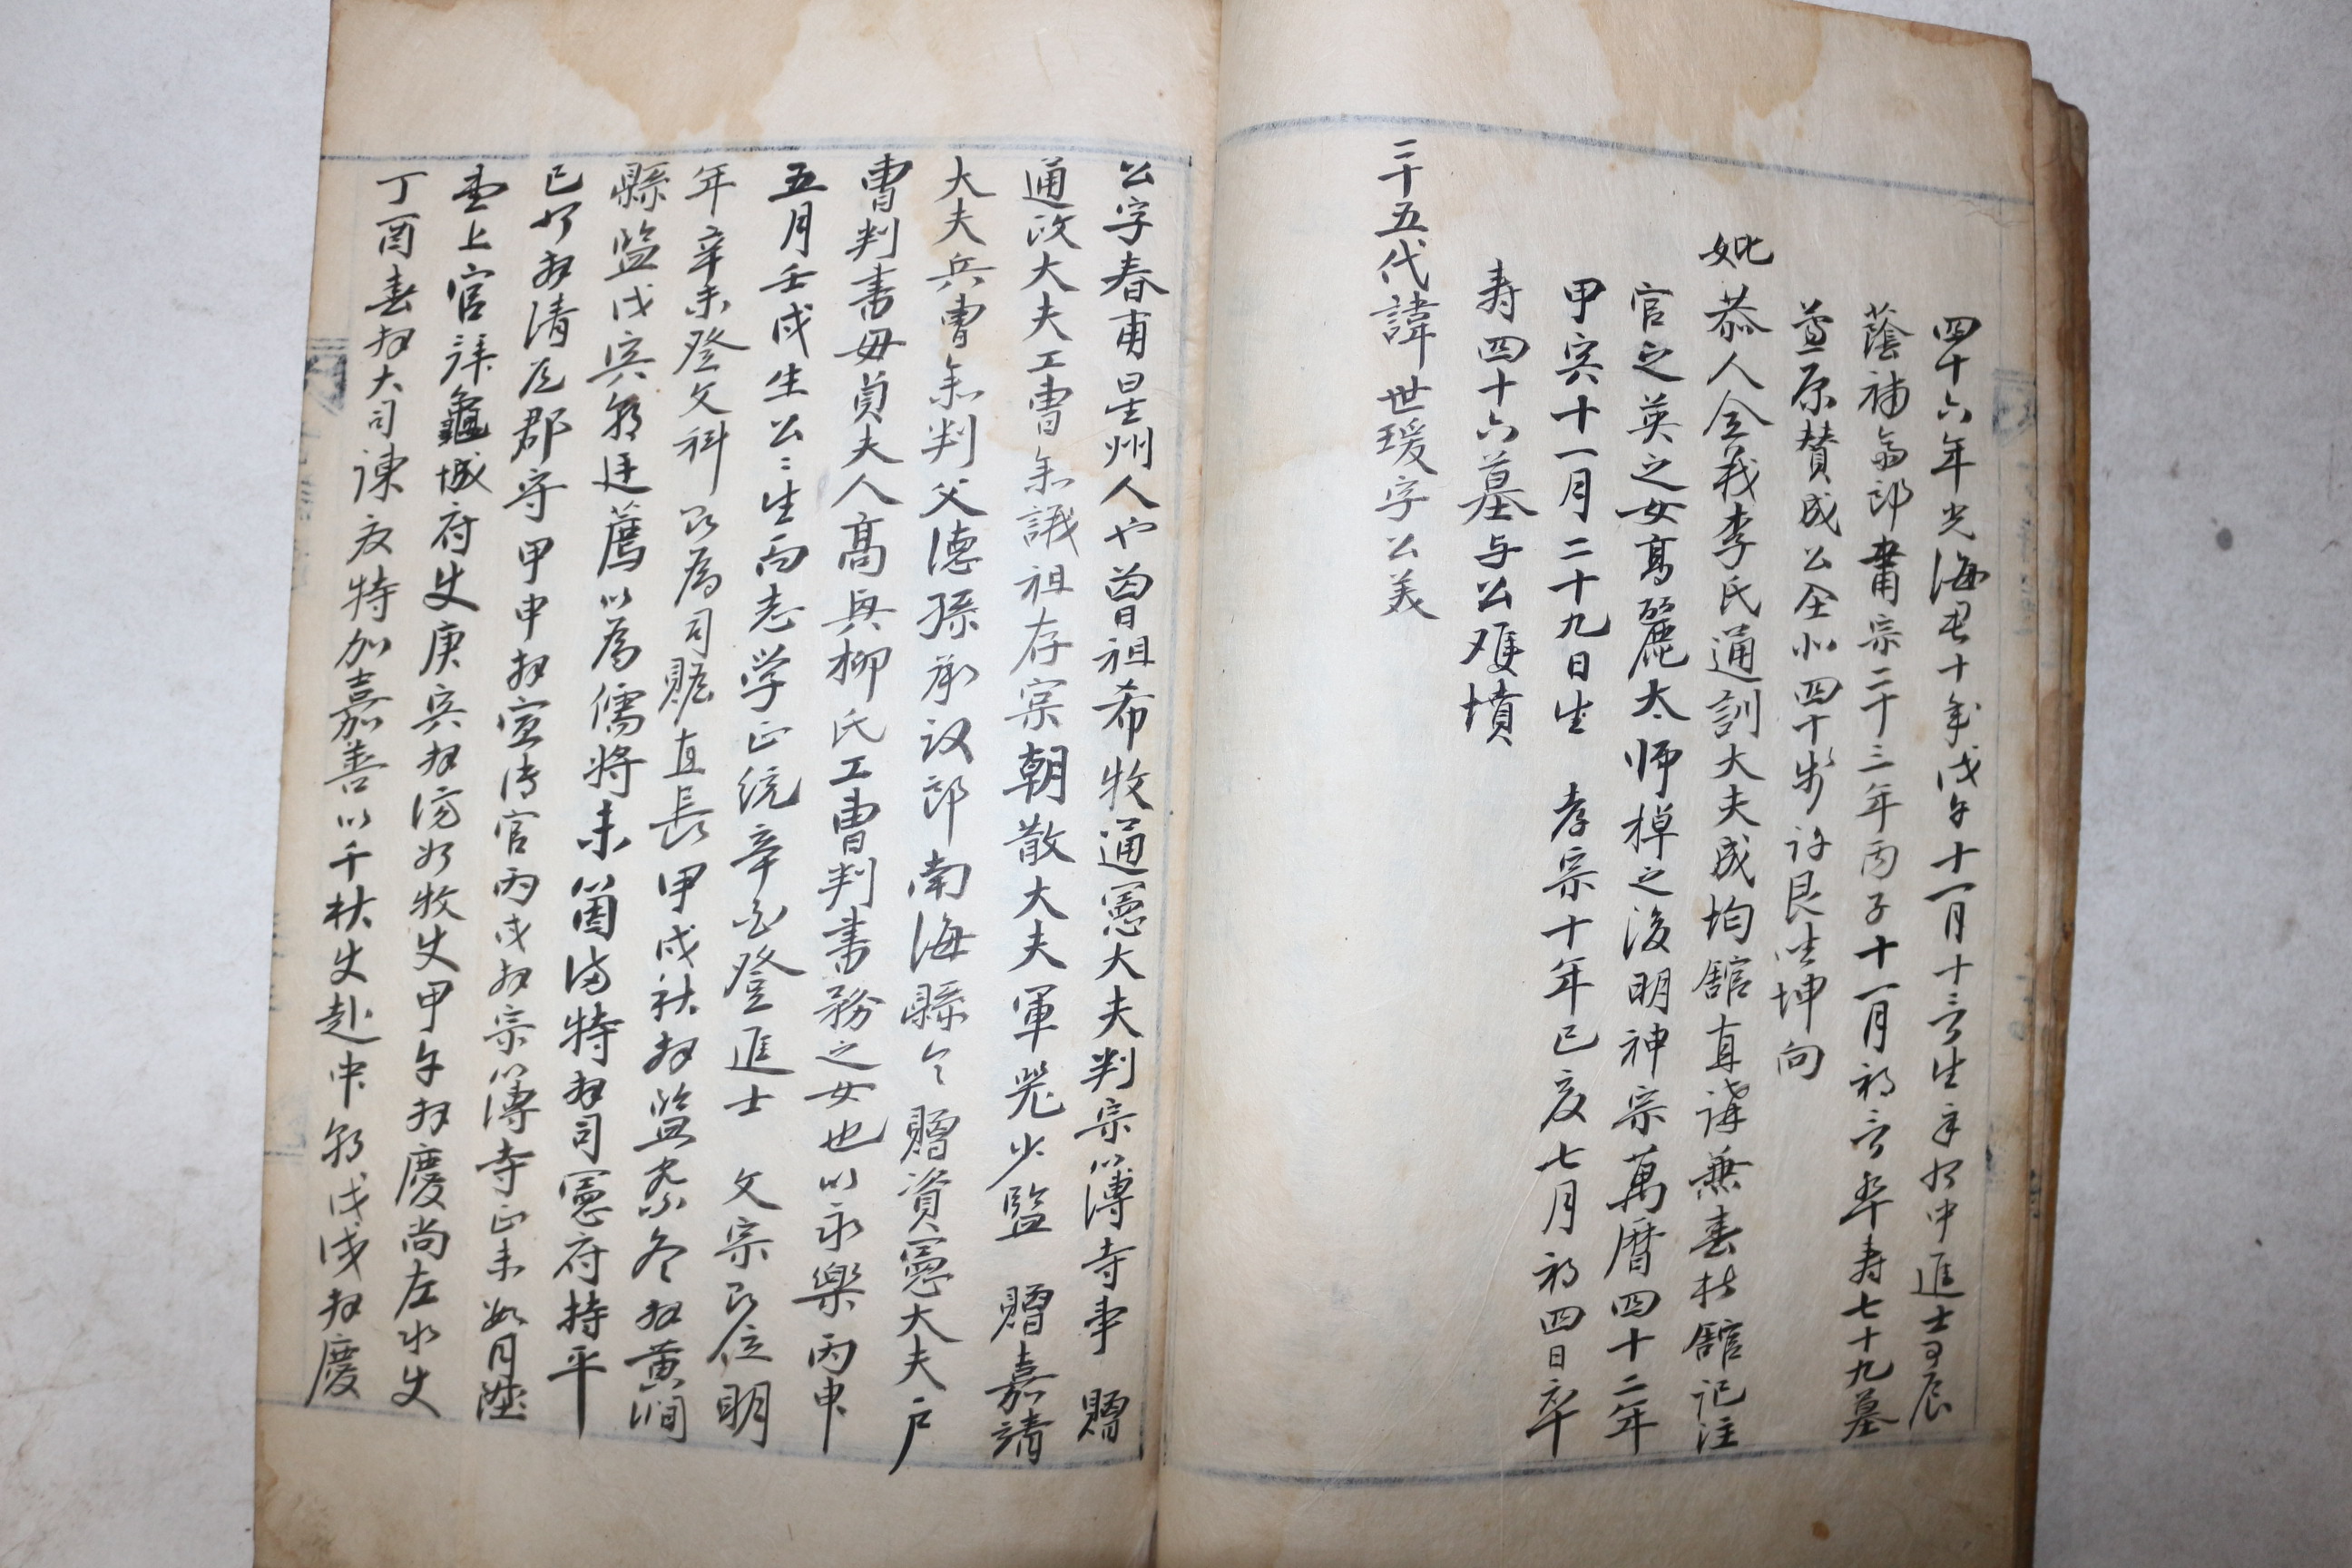 四十六年光海君十年戊午十一月十三日生辛卯中進士丙辰
蔭補 郎肅宗二十三年丙子十一月初三日卒壽七十九墓
葛原贊成公公北四十步許艮坐坤向
妣恭人全義李氏通訓大夫成均館直講兼春秋館記注
官之英之女高麗太師棹之後明神宗萬曆四十二年
甲寅十一月二十九日生 孝宗十年己亥七月初四日卒
寿四十六墓与公双墳
二十五代諱世瑗字公美
公字春甫星州人也曾祖希牧通憲大夫判宗簿寺事 贈
通政大夫工曹參議祖存宗朝散大夫軍器少監 贈嘉靖
大夫兵曹參判父德孫承议郎南海縣令 贈資憲大夫户
曹判書毋貞夫人高興柳氏工曹判書務之女也以永樂丙申
五月壬戌生公公生而志学正統辛酉登進士 文宗即位明
年辛未登文科即為司贍直長甲戌秋拜監察冬拜黃澗
縣監戊寅朝廷薦以為儒將未箇滿特拜司憲府持平
己卯拜清道郡守甲申拜宣传官丙戌拜宗簿寺正未数月陞
堂上官拜龜城府使庚寅拜济州牧使甲午拜慶尚左水使
丁酉春拜大司諫 特加嘉善以千秋使赴中朝戊戌拜慶